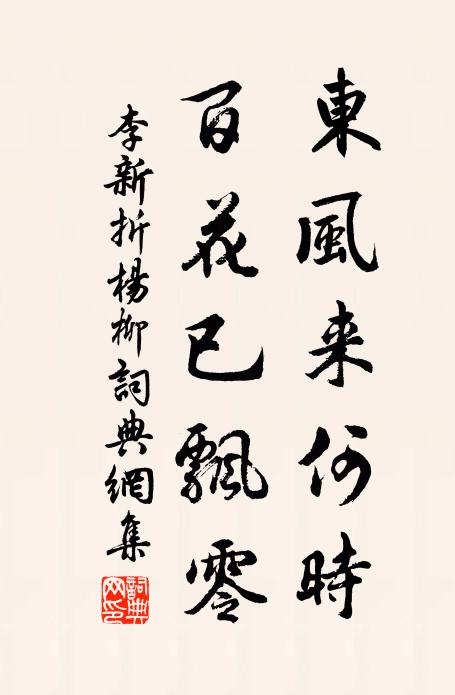 東風来何時
百花已飄零
李新折楊柳詞典網集
詞典網印